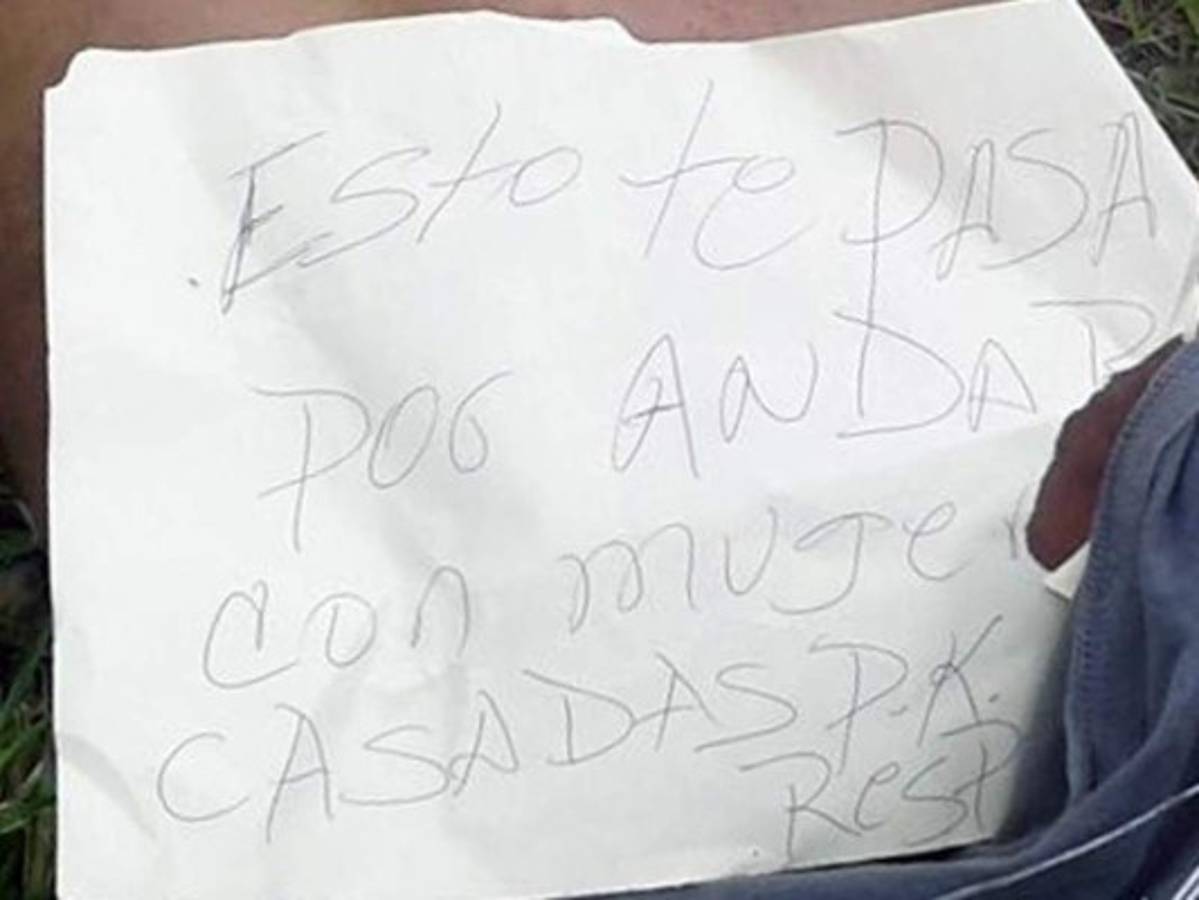 Esto te PASA
por ANDAR
con mujer
CASADAS P.K.
Resp